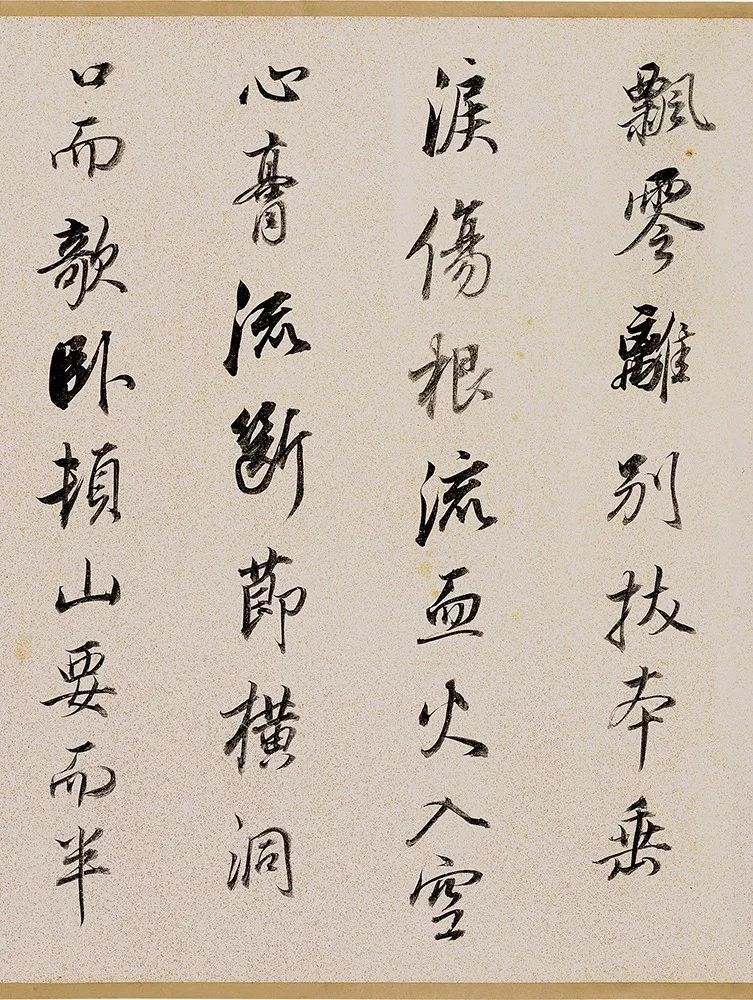 飄零離別拔本垂
淚傷根流血火入空
心膏流斷節橫洞
口而欹臥頓山要而半